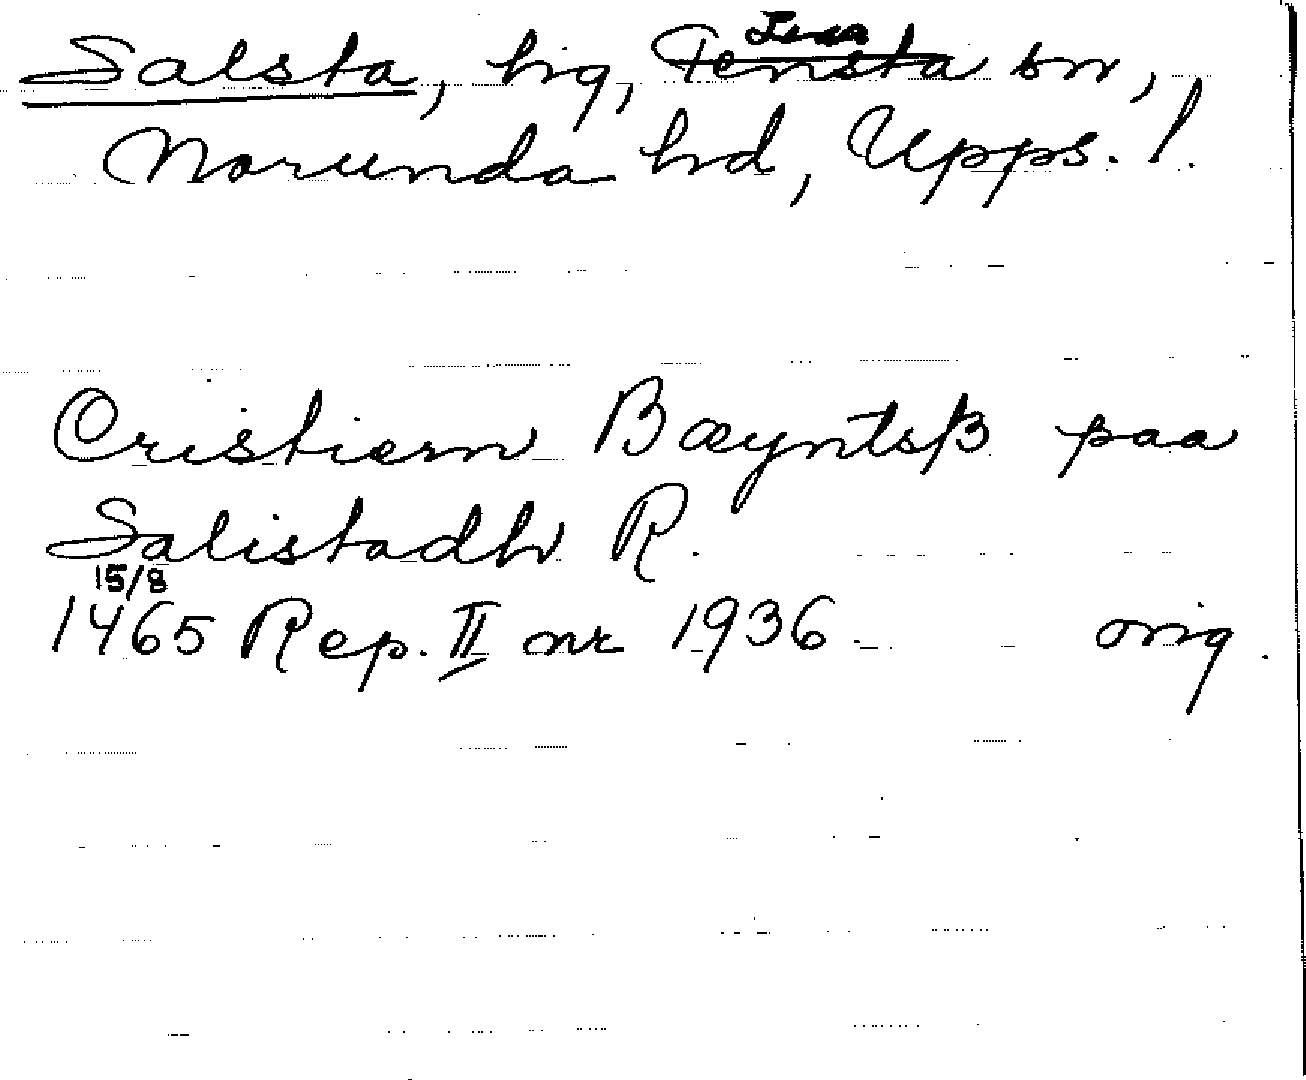 Salsta, hg, Tensta Lena sn,
Norunda hd, Upps. l.
Cristiern Bæyntsß paa
Salistadh R.
15/8
1465 Rep. II nr 1936 orig.